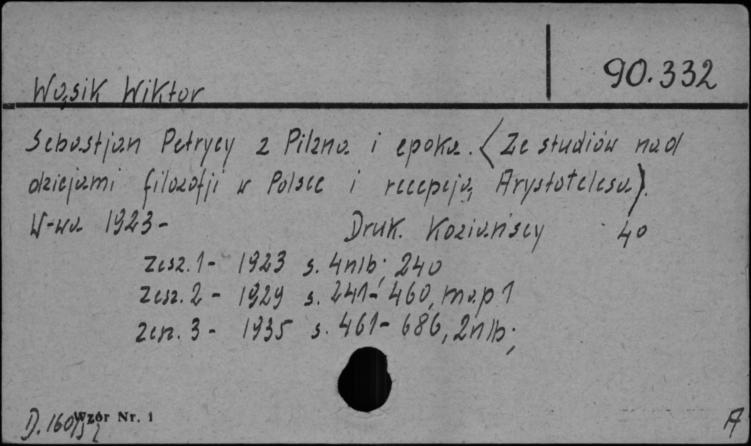 90.332
Wąsik Wiktor
Sebastjan Petrycy z Pilzna i epoka. (Ze studiów nad
dziejami filozofji w Polsce i recepcją Arystotelesa).
W-wa 1923- Druk. Koziańscy 4o
zesz. 1 - 1923 s. 4nlb; 240
zesz. 2 - 1929 s. 241-460, map 1
zesz. 3 - 1935 s. 461-686, 2nlb;
Wzór Nr. 1 A